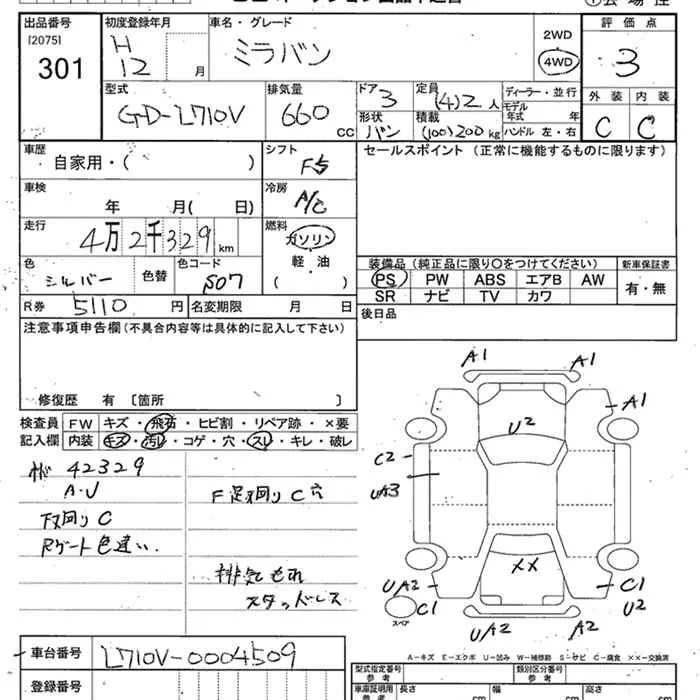 出品番号
[2075]
301
初度登録年月
H
12 月
車名・グレード
ミラバン
2WD
4WD
評価点
3
型式
GD-L710V
排気量
660
CC
ドア
3
定員
(4)2人
形状
バン
積載
(100)200kg
ディーラー・並行
モデル
年式 年
ハンドル 左・右
外装 内装
C C
車歴
自家用・( )
シフト
F5
セールスポイント (正常に機能するものに限ります)
車検
年 月( 日)
冷房
A/C
走行
4万2千329km
燃料
ガソリン
軽・油
( )
色
シルバー
色替
色コード
S07
装備品(純正品に限り〇をつけてください)
新車保証書
PS PW ABS エアB AW
SR ナビ TV カワ
有・無
R券 5110 円
名変期限 月 日
後日品
注意事項申告欄(不具合内容等は具体的に記入して下さい)
修復歴 有 〔箇所 〕
検査員
記入欄
FW キズ・飛石・ヒビ割・リペア跡・×要
内装 キズ・汚れ・コゲ・穴・スレ・キレ・破レ
42329
A・U
下回りC
Rゲート色違い.
F足回りC穴
排気もれ
スタッドレス
A1
A1
A1
U2
C2
UA3
XX
UA2
C1
スペア
UA2
A2
C1
U2
A-キズ E-エクボ U-凹み W-補修跡 S-サビ C-腐食 ××-交換済
車台番号
L710V-0004509
登録番号
型式指定番号
参考
類別区分番号
参考
車庫証明用
参考
長さ
cm
幅
cm
高さ
cm